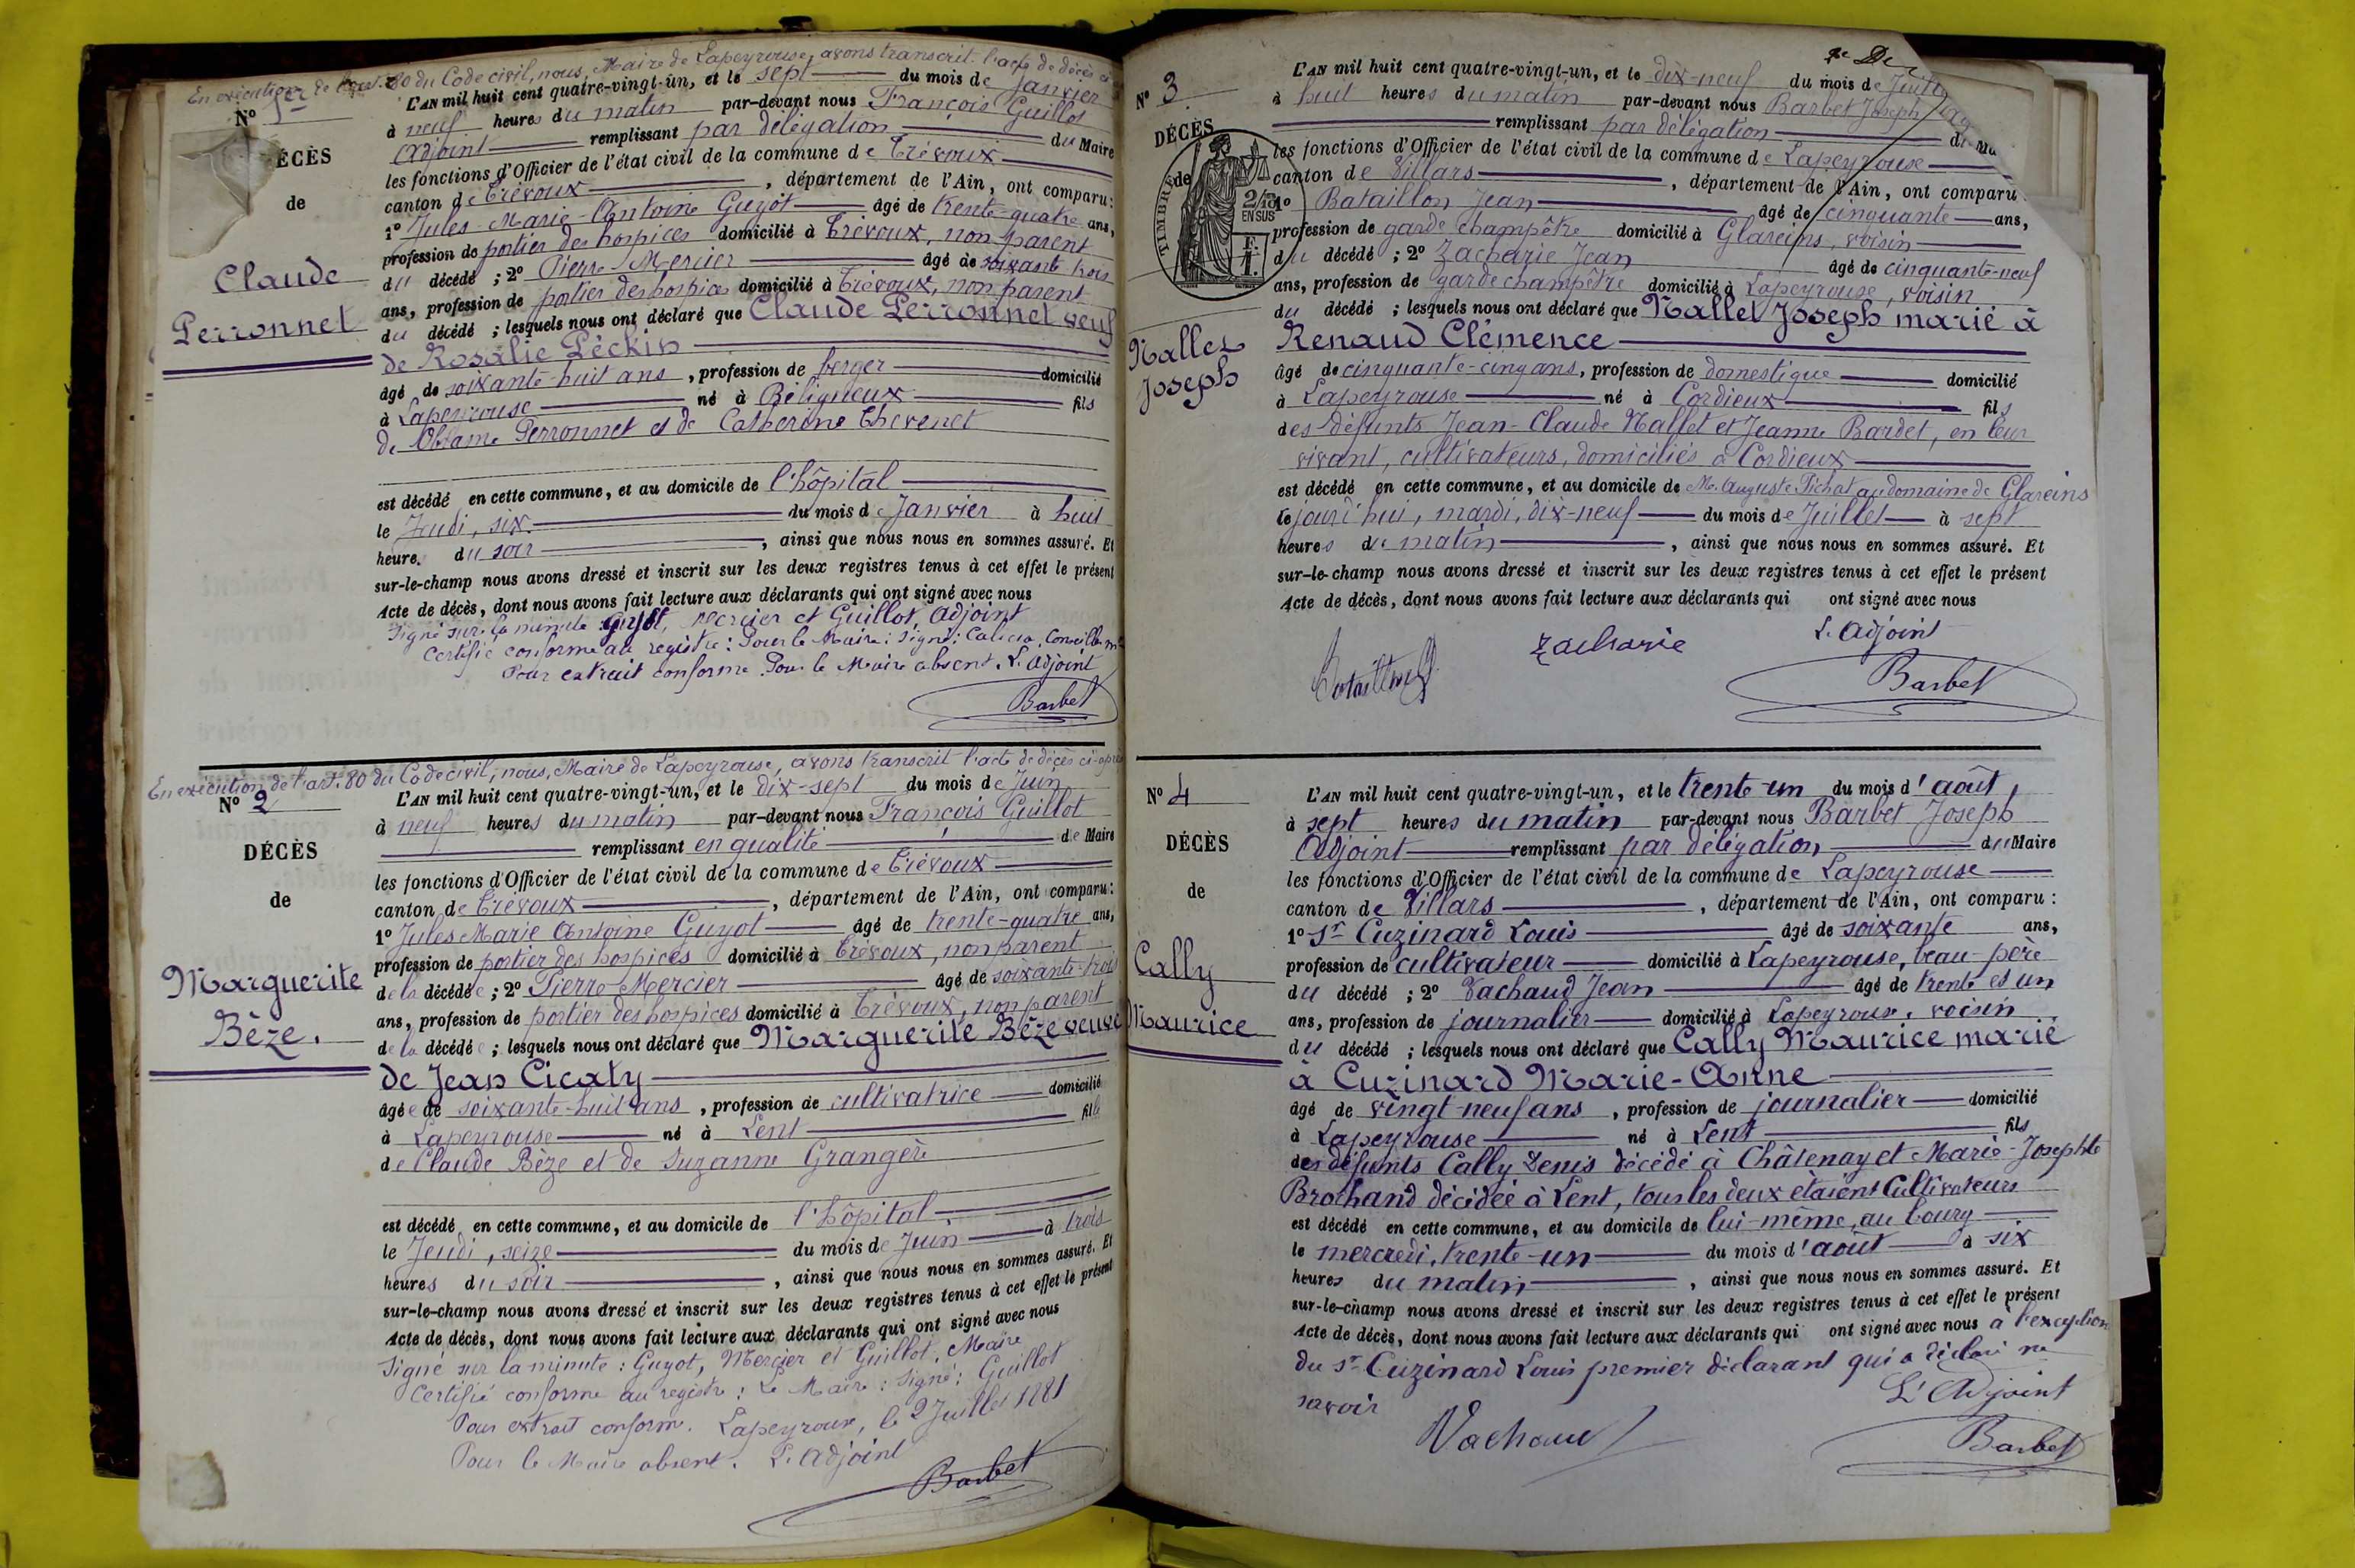 En exécution de l'art. 80 du Code civil, nous, Maire de Lapeyrouse, avons transcrit l'acte de décès
N° 1er
DÉCÈS
de
Claude
Perronnet
L'AN mil huit cent quatre-vingt-un, et le sept du mois de Janvier
à neuf heures du matin par-devant nous François Guillot
Adjoint remplissant par délégation du Maire
les fonctions d'Officier de l'état civil de la commune de Trévoux
canton de Trévoux, département de l'Ain, ont comparu:
1° Jules-Marie-Antoine Guyot âgé de trente-quatre ans,
profession de portier des hospices domicilié à Trévoux, non parent
du décédé ; 2° Pierre Mercier âgé de soixante trois
ans, profession de portier des hospices domicilié à Trévoux, non parent
du décédé ; lesquels nous ont déclaré que Claude Perronnet veuf
de Rosalie Péckin
âgé de soixante-huit ans, profession de berger domicilié
à Lapeyrouse né à Béligneux fils
de Perronnet et de Catherine Thevenet
est décédé en cette commune, et au domicile de l'hôpital
le Jeudi, six du mois de Janvier à huit
heure du soir, ainsi que nous nous en sommes assuré. Et
sur-le-champ nous avons dressé et inscrit sur les deux registres tenus à cet effet le présent
Acte de décès, dont nous avons fait lecture aux déclarants qui ont signé avec nous
Signé sur la minute : Guyot, Mercier et Guillot, Adjoint
Certifié conforme au registre : Pour le Maire : Signé :
Pour extrait conforme Pour le Maire absent. L'adjoint
Barbet
En exécution de l'art. 80 du Code civil, nous, Maire de Lapeyrouse, avons transcrit l'acte de décès ci-après
N° 2
DÉCÈS
de
Marguerite
Bèze.
L'AN mil huit cent quatre-vingt-un, et le dix-sept du mois de Juin
à neuf heures du matin par-devant nous François Guillot
remplissant en qualité de Maire
les fonctions d'Officier de l'état civil de la commune de Trévoux
canton de Trévoux, département de l'Ain, ont comparu:
1° Jules Marie Antoine Guyot âgé de trente-quatre ans,
profession de portier des hospices domicilié à Trévoux, non parent
de la décédée ; 2° Pierre Mercier âgé de soixante-trois
ans, profession de portier des hospices domicilié à Trévoux, non parent
de la décédée ; lesquels nous ont déclaré que Marguerite Bèze veuve
de Jean Cicaty
âgée de soixante-huit ans, profession de cultivatrice domicilié
à Lapeyrouse né à Lent fille
de Claude Bèze et de Suzanne Grangère
est décédé en cette commune, et au domicile de l'hôpital
le Jeudi, seize du mois de Juin à trois
heures du soir, ainsi que nous nous en sommes assuré. Et
sur-le-champ nous avons dressé et inscrit sur les deux registres tenus à cet effet le présent
Acte de décès, dont nous avons fait lecture aux déclarants qui ont signé avec nous
Signé sur la minute : Guyot, Mercier et Guillot, Maire
Certifié conforme au registre : Le Maire : Signé : Guillot
Pour extrait conforme. Lapeyrouse, le 2 Juillet 1881
Pour le Maire absent. L'adjoint
Barbet
N° 3
DÉCÈS
de
TIMBRE
2/10 EN SUS
Nallet
Joseph
L'AN mil huit cent quatre-vingt-un, et le dix-neuf du mois de
à huit heures du matin par-devant nous Barbet Joseph
remplissant par délégation du
les fonctions d'Officier de l'état civil de la commune de Lapeyrouse
canton de Villars, département de l'Ain, ont comparu
1° Bataillon Jean âgé de cinquante ans,
profession de garde champêtre domicilié à Glareins, voisin
du décédé ; 2° Zacharie Jean âgé de cinquante-neuf
ans, profession de garde champêtre domicilié à Lapeyrouse, voisin
du décédé ; lesquels nous ont déclaré que Nallet Joseph marié à
Renaud Clémence
âgé de cinquante-cinq ans, profession de domestique domicilié
à Lapeyrouse né à Cordieux fils
des défunts Jean-Claude Nallet et Jeanne Bardet, en leur
vivant, cultivateurs, domiciliés à Cordieux
est décédé en cette commune, et au domicile de Mr. Auguste Pichat au domaine de Glareins
cejourd'hui, mardi, dix-neuf du mois de Juillet à sept
heures du matin, ainsi que nous nous en sommes assuré. Et
sur-le-champ nous avons dressé et inscrit sur les deux registres tenus à cet effet le présent
Acte de décès, dont nous avons fait lecture aux déclarants qui ont signé avec nous
Bataillon Zacharie L'Adjoint
Barbet
N° 4
DÉCÈS
de
Cally
Maurice
L'AN mil huit cent quatre-vingt-un, et le trente-un du mois d'août,
à sept heures du matin par-devant nous Barbet Joseph
Adjoint remplissant par délégation du Maire
les fonctions d'Officier de l'état civil de la commune de Lapeyrouse
canton de Villars, département de l'Ain, ont comparu :
1° Sr Cuzinard Louis âgé de soixante ans,
profession de cultivateur domicilié à Lapeyrouse, beau-père
du décédé ; 2° Vachaud Jean âgé de trente et un
ans, profession de journalier domicilié à Lapeyrouse, voisin
du décédé ; lesquels nous ont déclaré que Cally Maurice marié
à Cuzinard Marie-Anne
âgé de vingt neuf ans, profession de journalier domicilié
à Lapeyrouse né à Lent fils
des défunts Cally Denis décédé à Châtenay et Marie-Josephte
Brochand décédée à Lent, tous les deux étaient Cultivateurs
est décédé en cette commune, et au domicile de lui-même, au bourg
le mercredi, trente-un du mois d'août à six
heures du matin, ainsi que nous nous en sommes assuré. Et
sur-le-champ nous avons dressé et inscrit sur les deux registres tenus à cet effet le présent
Acte de décès, dont nous avons fait lecture aux déclarants qui ont signé avec nous à l'exception
du Sr Cuzinard Louis premier déclarant qui a déclaré ne
savoir
L'Adjoint
Vachaud
Barbet